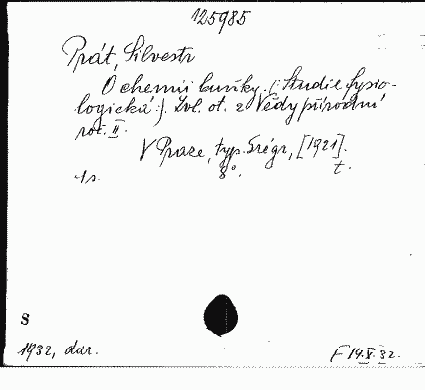 125985
Prát, Silvestr
O chemii buňky. (: Studie fysio-
logická :). Zvl. ot. z Vědy přírodní
roč. II.
V Praze, typ. Grégr, [1921].
4 s. 8°. t.
S
1932, dar. F 14.X.32.